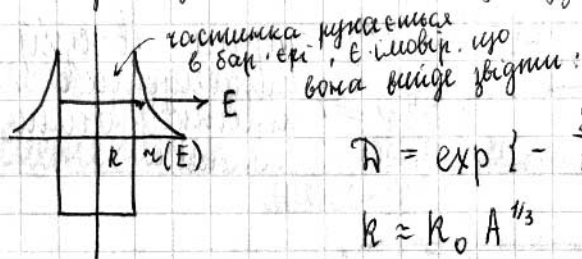 частинка рухається
в бар'єрі, є імовір. що
вона вийде звідти:
E
R r(E)
D = exp { -
R ≈ R₀ A^1/3